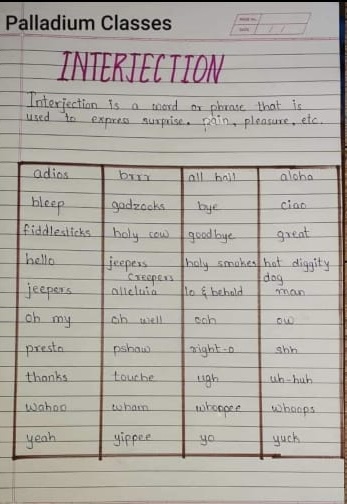 Palladium Classes
PAGE No.
DATE
INTERJECTION
Interjection is a word or phrase that is
used to express surprise, pain, pleasure, etc.
adios brrr all hail aloha
bleep gadzooks bye ciao
fiddlesticks holy cow goodbye great
hello jeepers creepers holy smokes hot diggity dog
jeepers alleluia lo & behold man
oh my oh well ooh ow
presto pshaw right-o shh
thanks touche ugh uh-huh
wahoo wham whoopee whoops
yeah yippee yo yuck